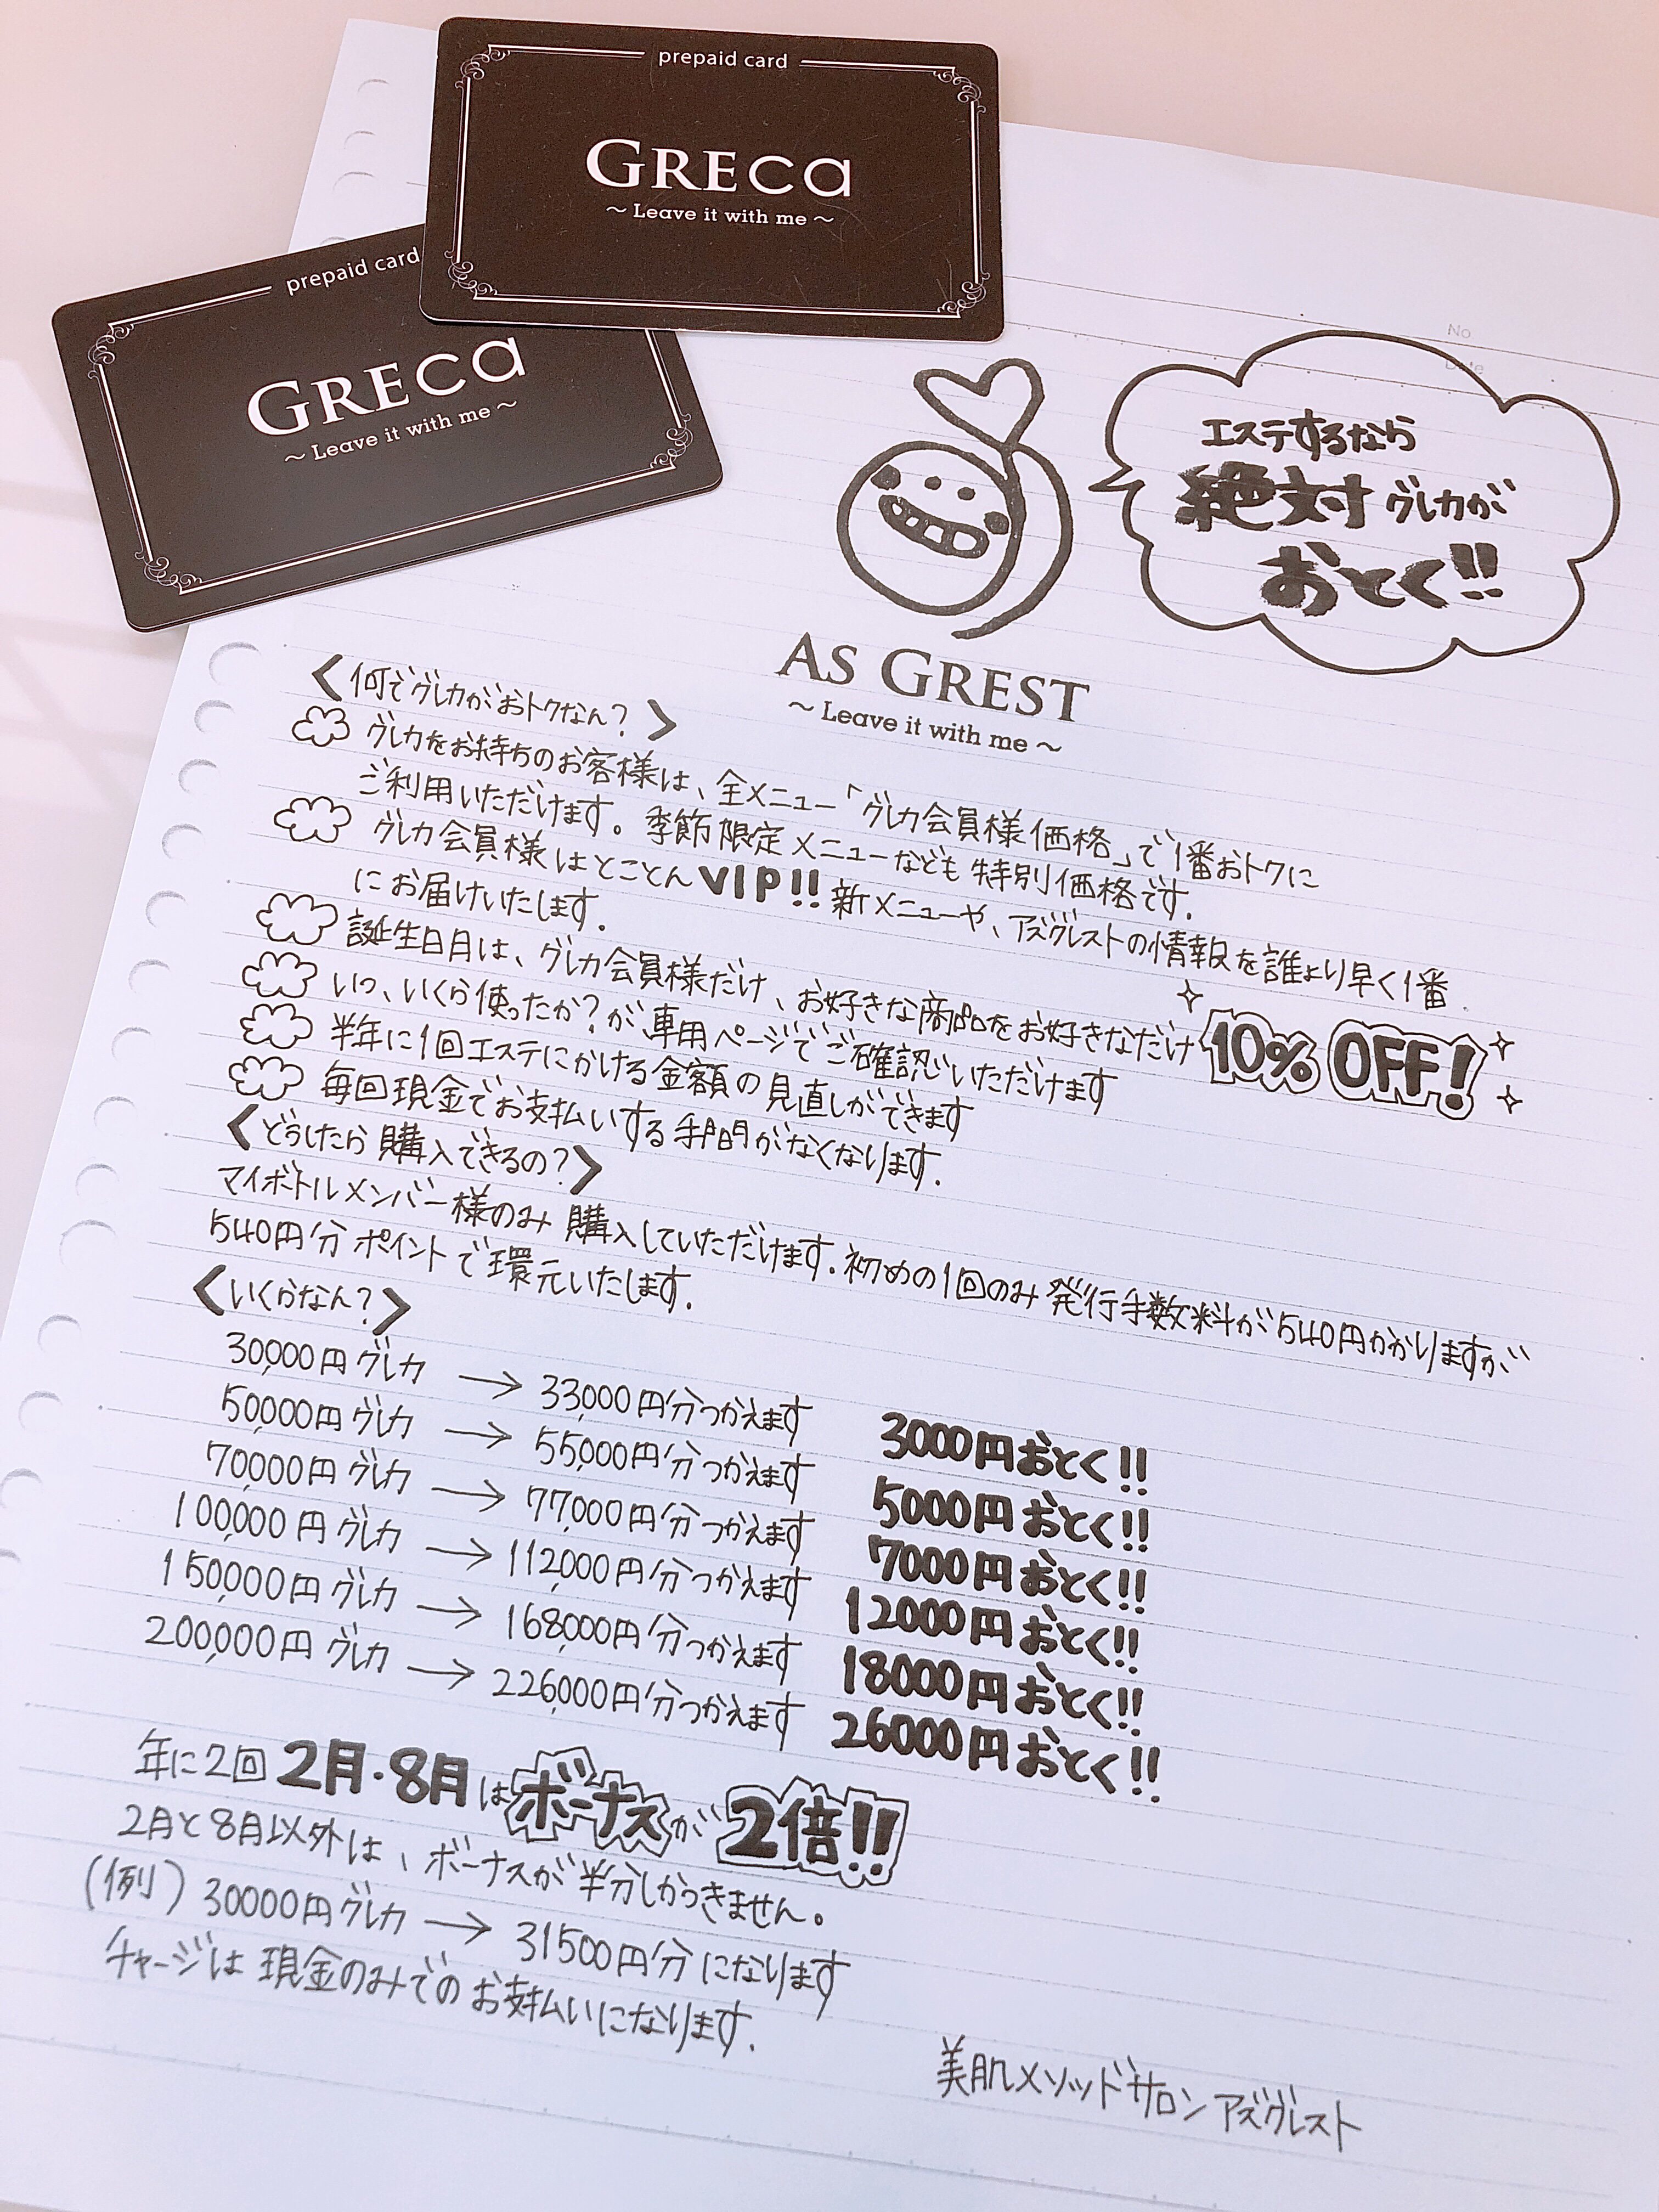 prepaid card
GRECa
～ Leave it with me ～
prepaid card
GRECa
～ Leave it with me ～
No
Date
エステするなら
絶対グレカが
おとく!!
AS GREST
～ Leave it with me ～
<何でグレカがおトクなん?>
グレカをお持ちのお客様は、全メニュー「グレカ会員様価格」で1番おトクに
ご利用いただけます。季節限定メニューなども特別価格です.
グレカ会員様はとことんVIP!!新メニューや、アズグレストの情報を誰より早く1番
にお届けいたします.
誕生日月は、グレカ会員様だけ、お好きな商品をお好きなだけ10% OFF!
いつ、いくら使ったか?が専用ページでご確認いただけます
半年に1回エステにかける金額の見直しができます
毎回現金でお支払いする手間がなくなります.
<どうしたら購入できるの?>
マイボトルメンバー様のみ購入していただけます.初めの1回のみ発行手数料が540円かかりますが
540円分ポイントで還元いたします.
<いくらなん?>
30,000円グレカ → 33,000円分つかえます 3000円おとく!!
50,000円グレカ → 55,000円分つかえます 5000円おとく!!
70,000円グレカ → 77,000円分つかえます 7000円おとく!!
100,000円グレカ → 112,000円分つかえます 12000円おとく!!
150,000円グレカ → 168,000円分つかえます 18000円おとく!!
200,000円グレカ → 226,000円分つかえます 26000円おとく!!
年に2回2月・8月はボーナスが2倍!!
2月と8月以外は、ボーナスが半分しかつきません。
(例) 30000円グレカ → 31500円分になります
チャージは現金のみでのお支払いになります.
美肌メソッドサロンアズグレスト